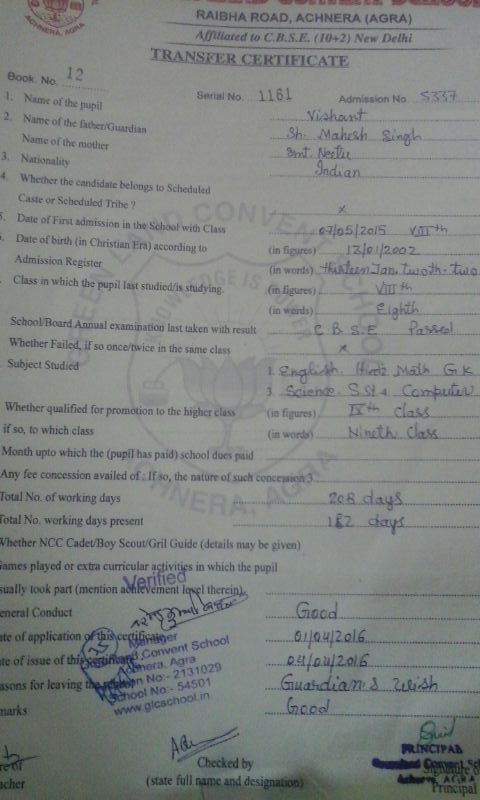 RAIBHA ROAD, ACHNERA (AGRA)
Affiliated to C.B.S.E. (10+2) New Delhi
TRANSFER CERTIFICATE
Book. No. 12 Serial No. 1161 Admission No. 5337
1. Name of the pupil Vishant
2. Name of the father/Guardian Sh. Mahesh Singh
Name of the mother Smt. Neetu
3. Nationality Indian
4. Whether the candidate belongs to Scheduled
Caste or Scheduled Tribe ? x
5. Date of First admission in the School with Class 07/05/2015 VIIIth
Date of birth (in Christian Era) according to (in figures) 13/01/2002
Admission Register (in words) thirteen Jan twoth. two
Class in which the pupil last studied/is studying. (in figures) VIIIth
(in words) Eighth
School/Board Annual examination last taken with result C B S E Passed
Whether Failed, if so once/twice in the same class x
Subject Studied 1. English. Hindi Math G K
3. Science. S St. Computer
Whether qualified for promotion to the higher class (in figures) IXth class
if so, to which class (in words) Nineth class
Month upto which the (pupil has paid) school dues paid
Any fee concession availed of : If so, the nature of such concession 3
Total No. of working days 208 days
Total No. working days present 182 days
Whether NCC Cadet/Boy Scout/Gril Guide (details may be given)
Games played or extra curricular activities in which the pupil
usually took part (mention achievement level therein)
General Conduct Good
Date of application of this certificate 01/04/2016
Date of issue of this certificate 04/04/2016
Reasons for leaving the Guardian's Wish
Remarks Good
Verified
Manager
Convent School
Achnera, Agra
No:- 2131029
School No:- 54501
www.glcschool.in
GREEN LAND CONVENT SCHOOL
KNOWLEDGE IS POWER
ACHNERA, AGRA
Checked by
(state full name and designation)
PRINCIPAL
Signature of
Principal